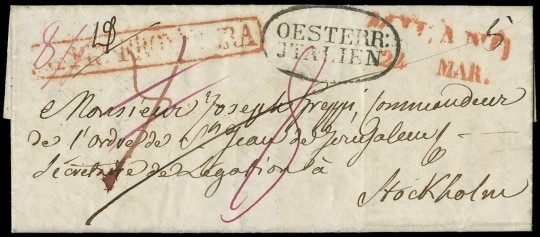 OESTERR:
JTALIEN
MILANO
MAR.
a Monsieur Joseph Greppi, Commandeur
de l'ordre de St Jean de Jerusalem
Sécretaire de Legation à
Stockholm